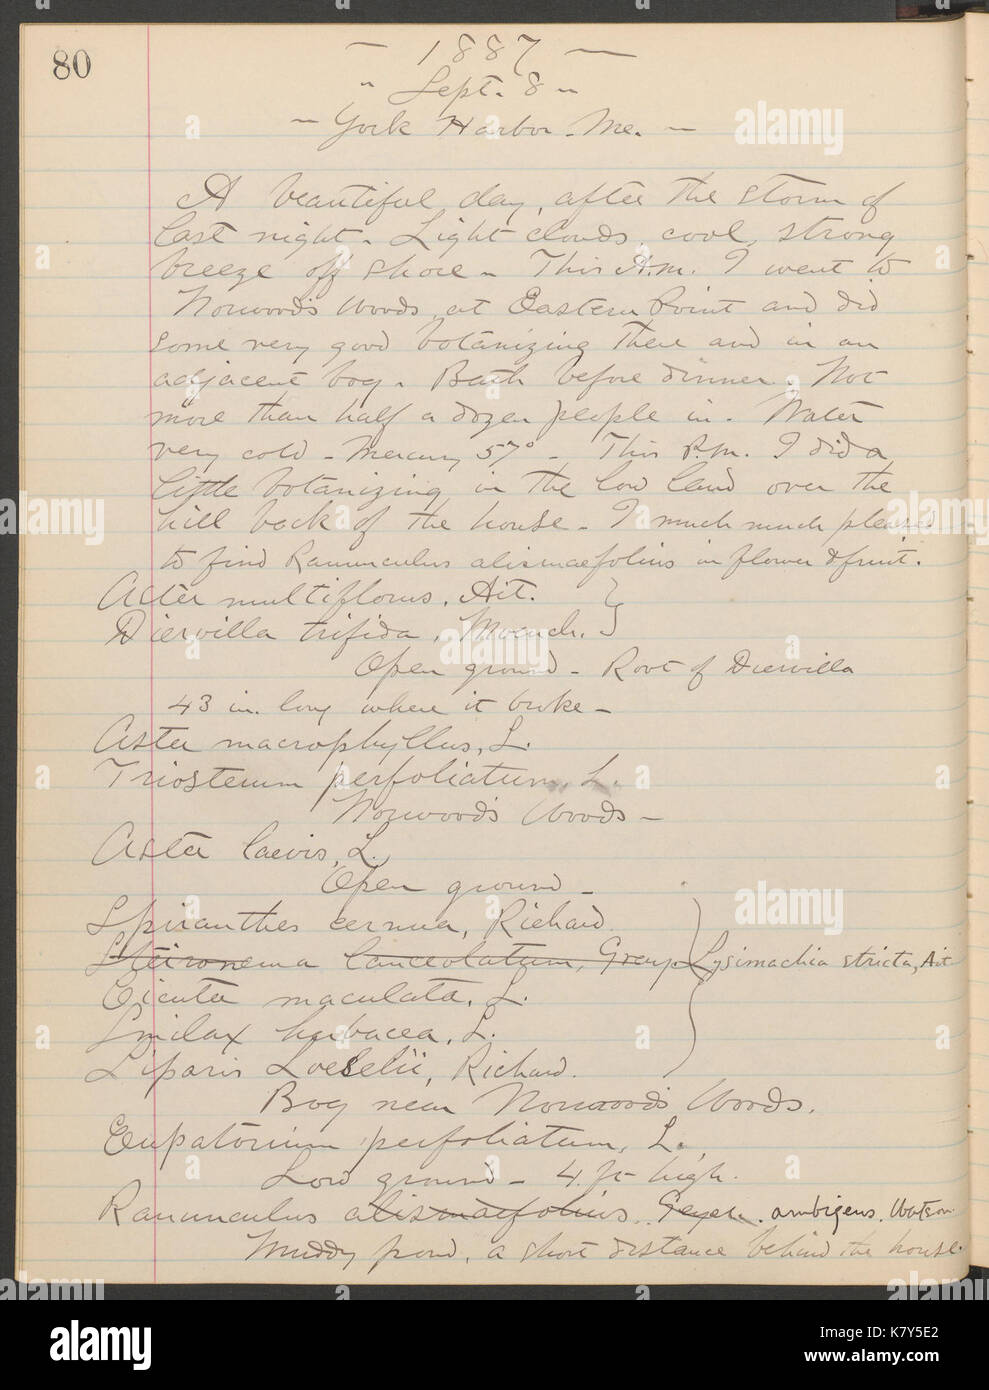 80
— 1887 —
" Sept. 8 "
— York Harbor. Me. —
A beautiful day, after the storm of
last night. Light clouds, cool, strong
breeze off shore. This A.m. I went to
Norwood's Woods, at Eastern Point and did
some very good botanizing there and in an
adjacent bog. Bath before dinner. Not
more than half a dozen people in. Water
very cold - Mercury 57° - This P.m. I did a
little botanizing in the low land over the
hill back of the house. I much much pleased
to find Ranunculus alismaefolius in flower & fruit.
Aster multiflorus, Ait.
Diervilla trifida, Moench.
Open ground - Root of Diervilla
43 in. long where it broke -
Aster macrophyllus, L.
Triosteum perfoliatum, L.
Norwood's Woods -
Aster laevis, L.
Open ground -
Spiranthes cernua, Richard.
Steironema lanceolatum, Gray. Lysimachia stricta, Ait
Cicuta maculata, L.
Smilax herbacea, L.
Liparis Loeselii, Richard.
Bog near Norwood's Woods.
Eupatorium perfoliatum, L.
Low ground - 4 ft high.
Ranunculus alismaefolius, Geyer. ambigens, Watson
Muddy pond, a short distance behind the house.
alamy
Image ID: K7Y5E2
www.alamy.com